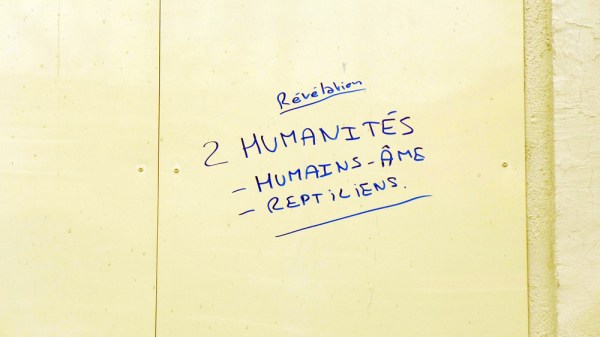 Révélation
2 HUMANITÉS
- HUMAINS-ÂME
- REPTILIENS.